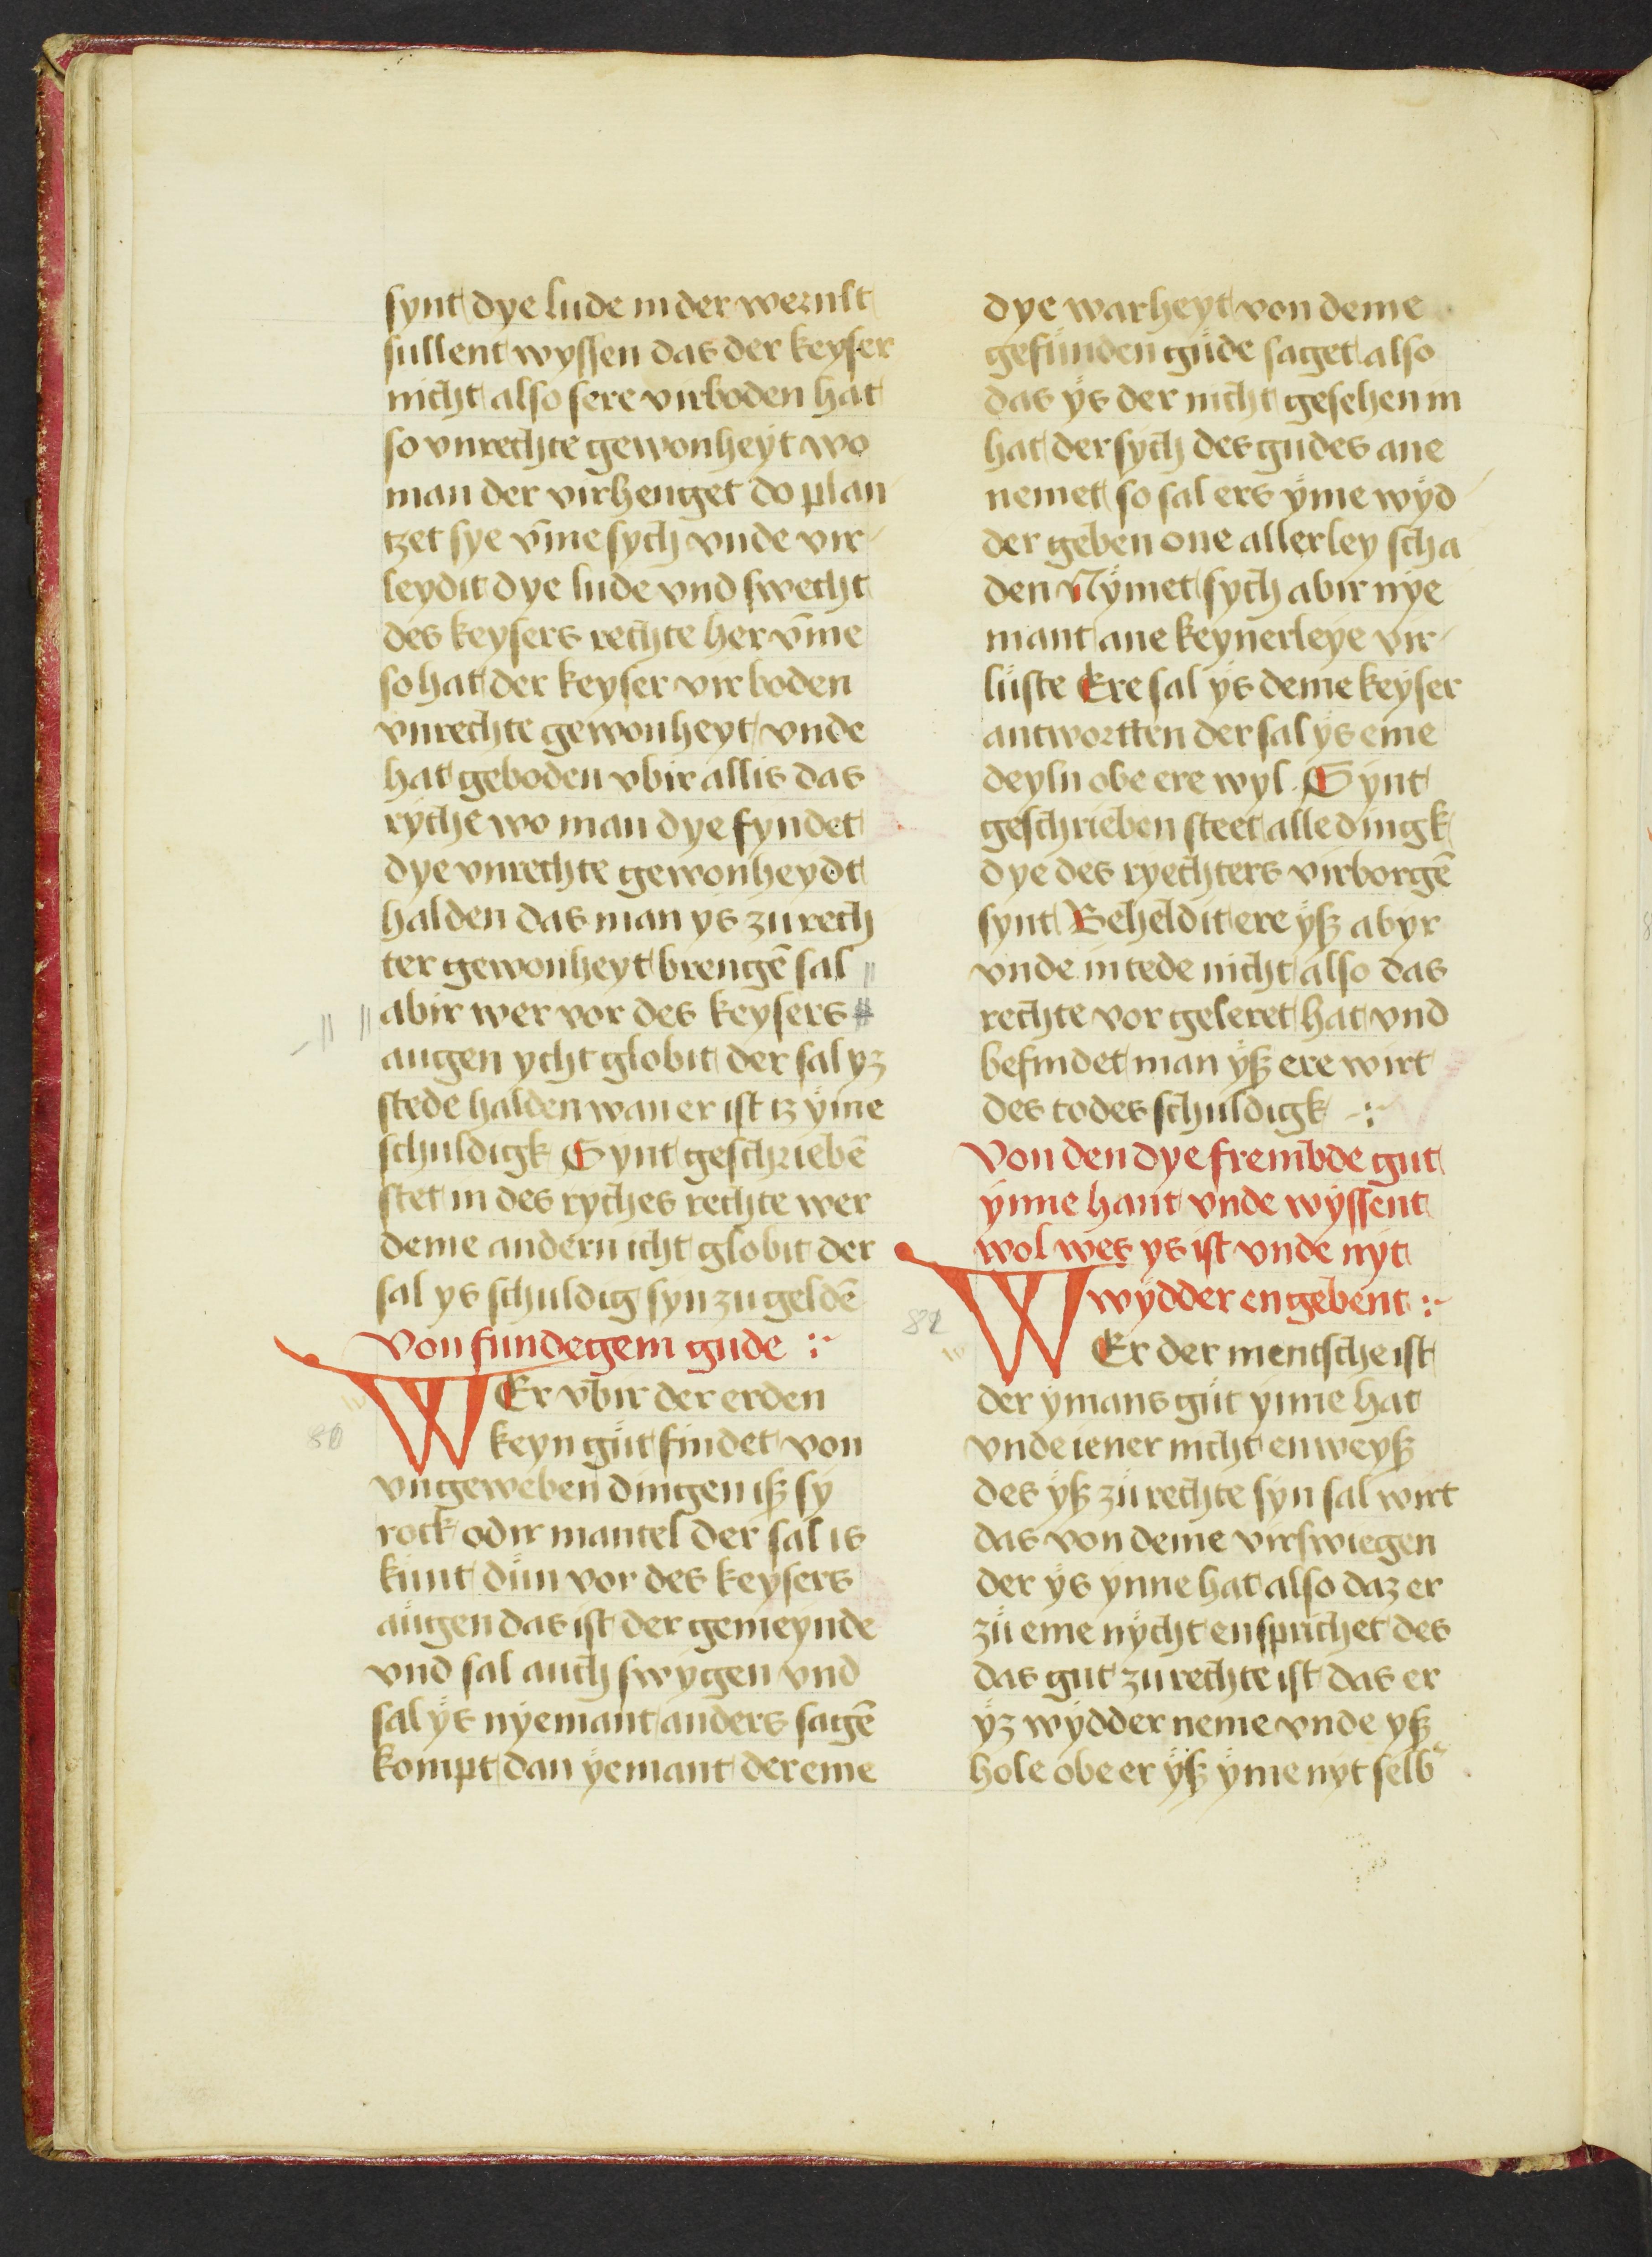 synt dye lude in der wernlt
sullent wyssen das der keyser
nicht also sere virboden hat
so vnrechte gewonheyt wo
man der virhenget do plan
tzet sye v̄me sych vnde vir
leydit dye lude vnd swecht
des keysers rechte her v̄me
so hat der keyser vir boden
vnrechte gewonheyt vnde
hat geboden vbir allis das
ryche wo man dye fyndet
dye vnrechte gewonheydt
halden das man ys zu rech
ter gewonheyt brengē sal
abir wer vor des keysers
augen ycht globit der sal yz
stede halden wan er ist iz ÿme
schuldigk Synt geschriebē
stet in des ryches rechte wer
deme andern icht globit der
sal ys schuldig syn zu geldē
Von fundegem gude :~
WEr vbir der erden
keyn gůt findet von
vngeweben dingen iß sy
rock odir mantel der sal is
kůnt důn vor des keysers
aůgen das ist der gemeynde
vnd sal auch swygen vnd
sal ÿs nyemant anders sagē
kompt dan ÿemant der eme
80
dye warheyt von deme
gefůnden gůde saget also
das ÿs der nicht gesehen in
hat der sych des gudes ane
nemet so sal ers ÿme wyd
der geben one allerley scha
den Nÿmet sych abir nÿe
mant ane keynerleye vir
lůste Ere sal ÿs deme keyser
antwortten der sal ÿs eme
deyln obe ere wyl. Synt
geschrieben steet alle dingk
dye des ryechters virborgē
synt Beheldit ere ÿß abyr
vnde in tede nicht also das
rechte vor geleret hat vnd
befindet man ÿß ere wirt
des todes schuldigk :~
Von den dye frembde gut
ynne hant vnde wyssent
wol wes ys ist vnde nyt
wydder en gebent :~
82
WEr der mentsche ist
der ymans gůt ynne hat
vnde iener nicht en weyß
des ÿß zů rechte syn sal wirt
das von deme virswiegen
der ÿs ynne hat also daz er
zů eme nycht ensprichet des
das gut zu rechte ist das er
ÿz wydder neme vnde yß
hole obe er ÿß ÿme nyt selb